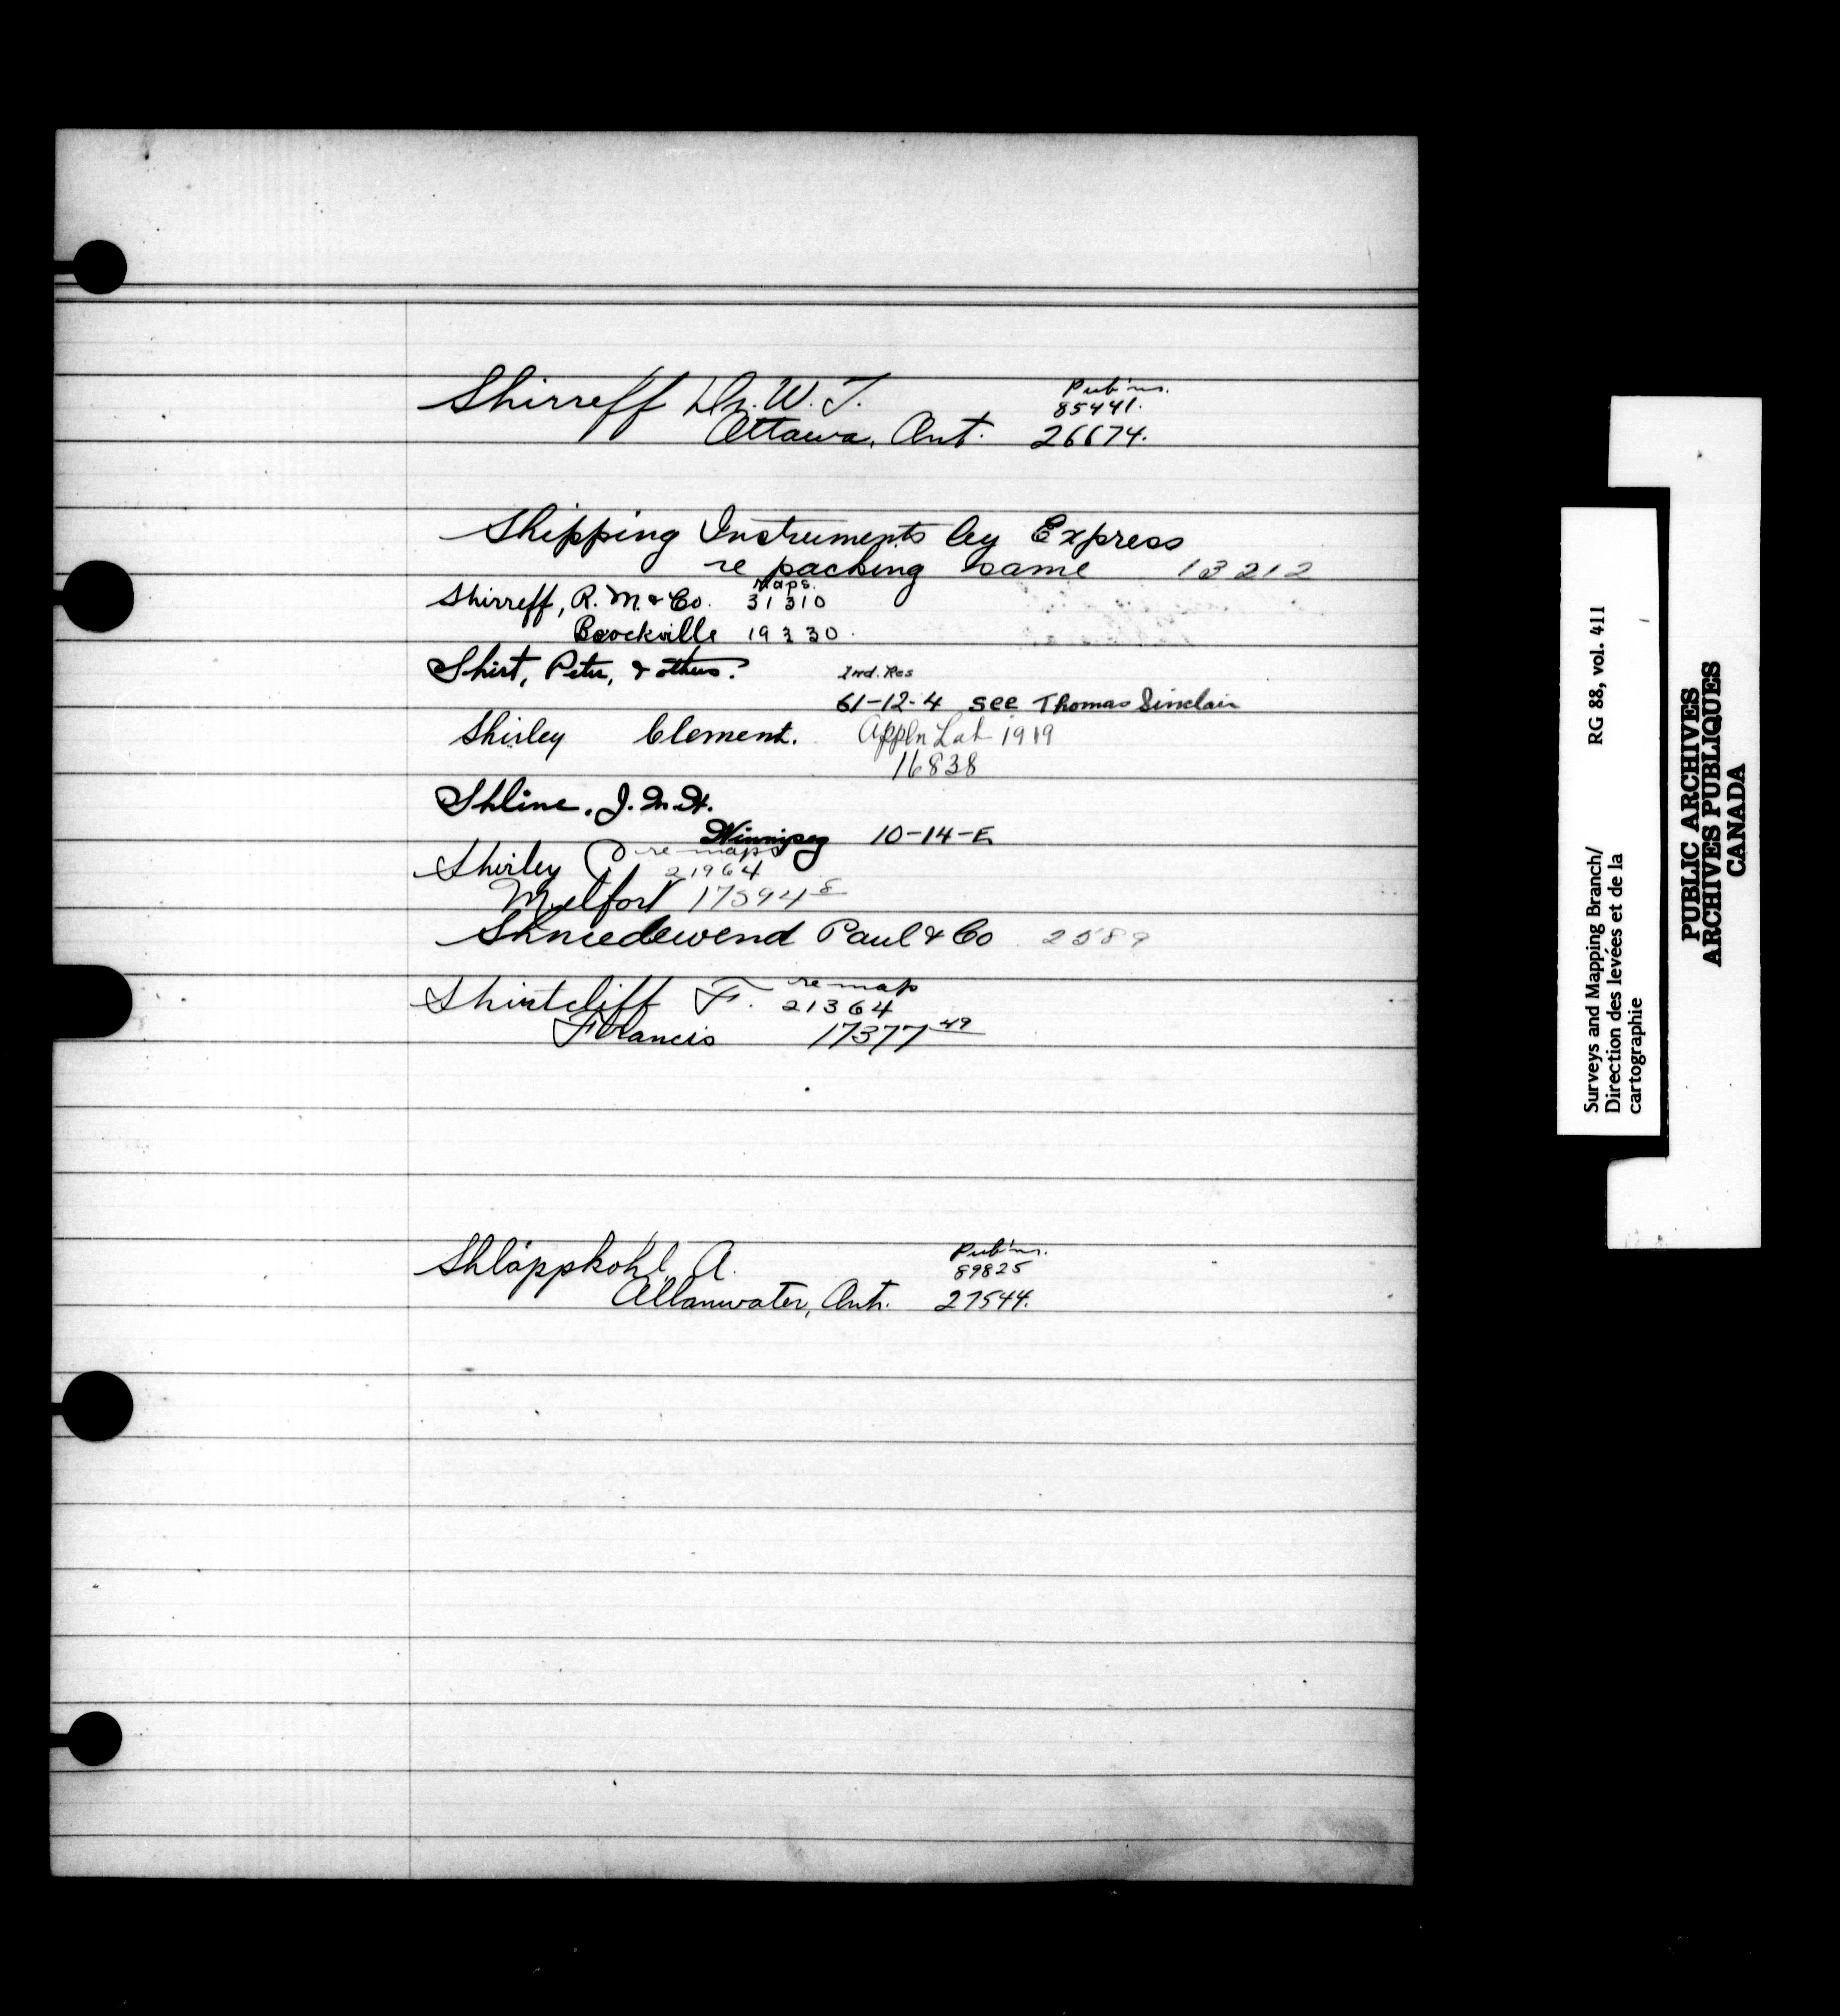 Shirreff Dr. W. T. Pub'ns.
85441.
Ottawa, Ont. 26674.
Shipping Instruments by Express
re packing same 13212
Maps.
Shirreff, R. M. & Co. 31310
Brockville 19330.
Shirt, Peter, & others. Ind. Res
61-12-4 see Thomas Sinclair
Shirley Clement. Appln Lab 1919
16838
Shline, J. M. H.
Winnipeg 10-14-E
re maps
Shirley C 21964
Melfort 17594 8
Shniedewend Paul & Co 2589
re map
Shirtcliff F. 21364
Francis 17377 49
Pub'ns.
Shlappkohl, A. 89825
Allanwater, Ont. 27544.
Surveys and Mapping Branch/ RG 88, vol. 411
Direction des levées et de la
cartographie
PUBLIC ARCHIVES
ARCHIVES PUBLIQUES
CANADA